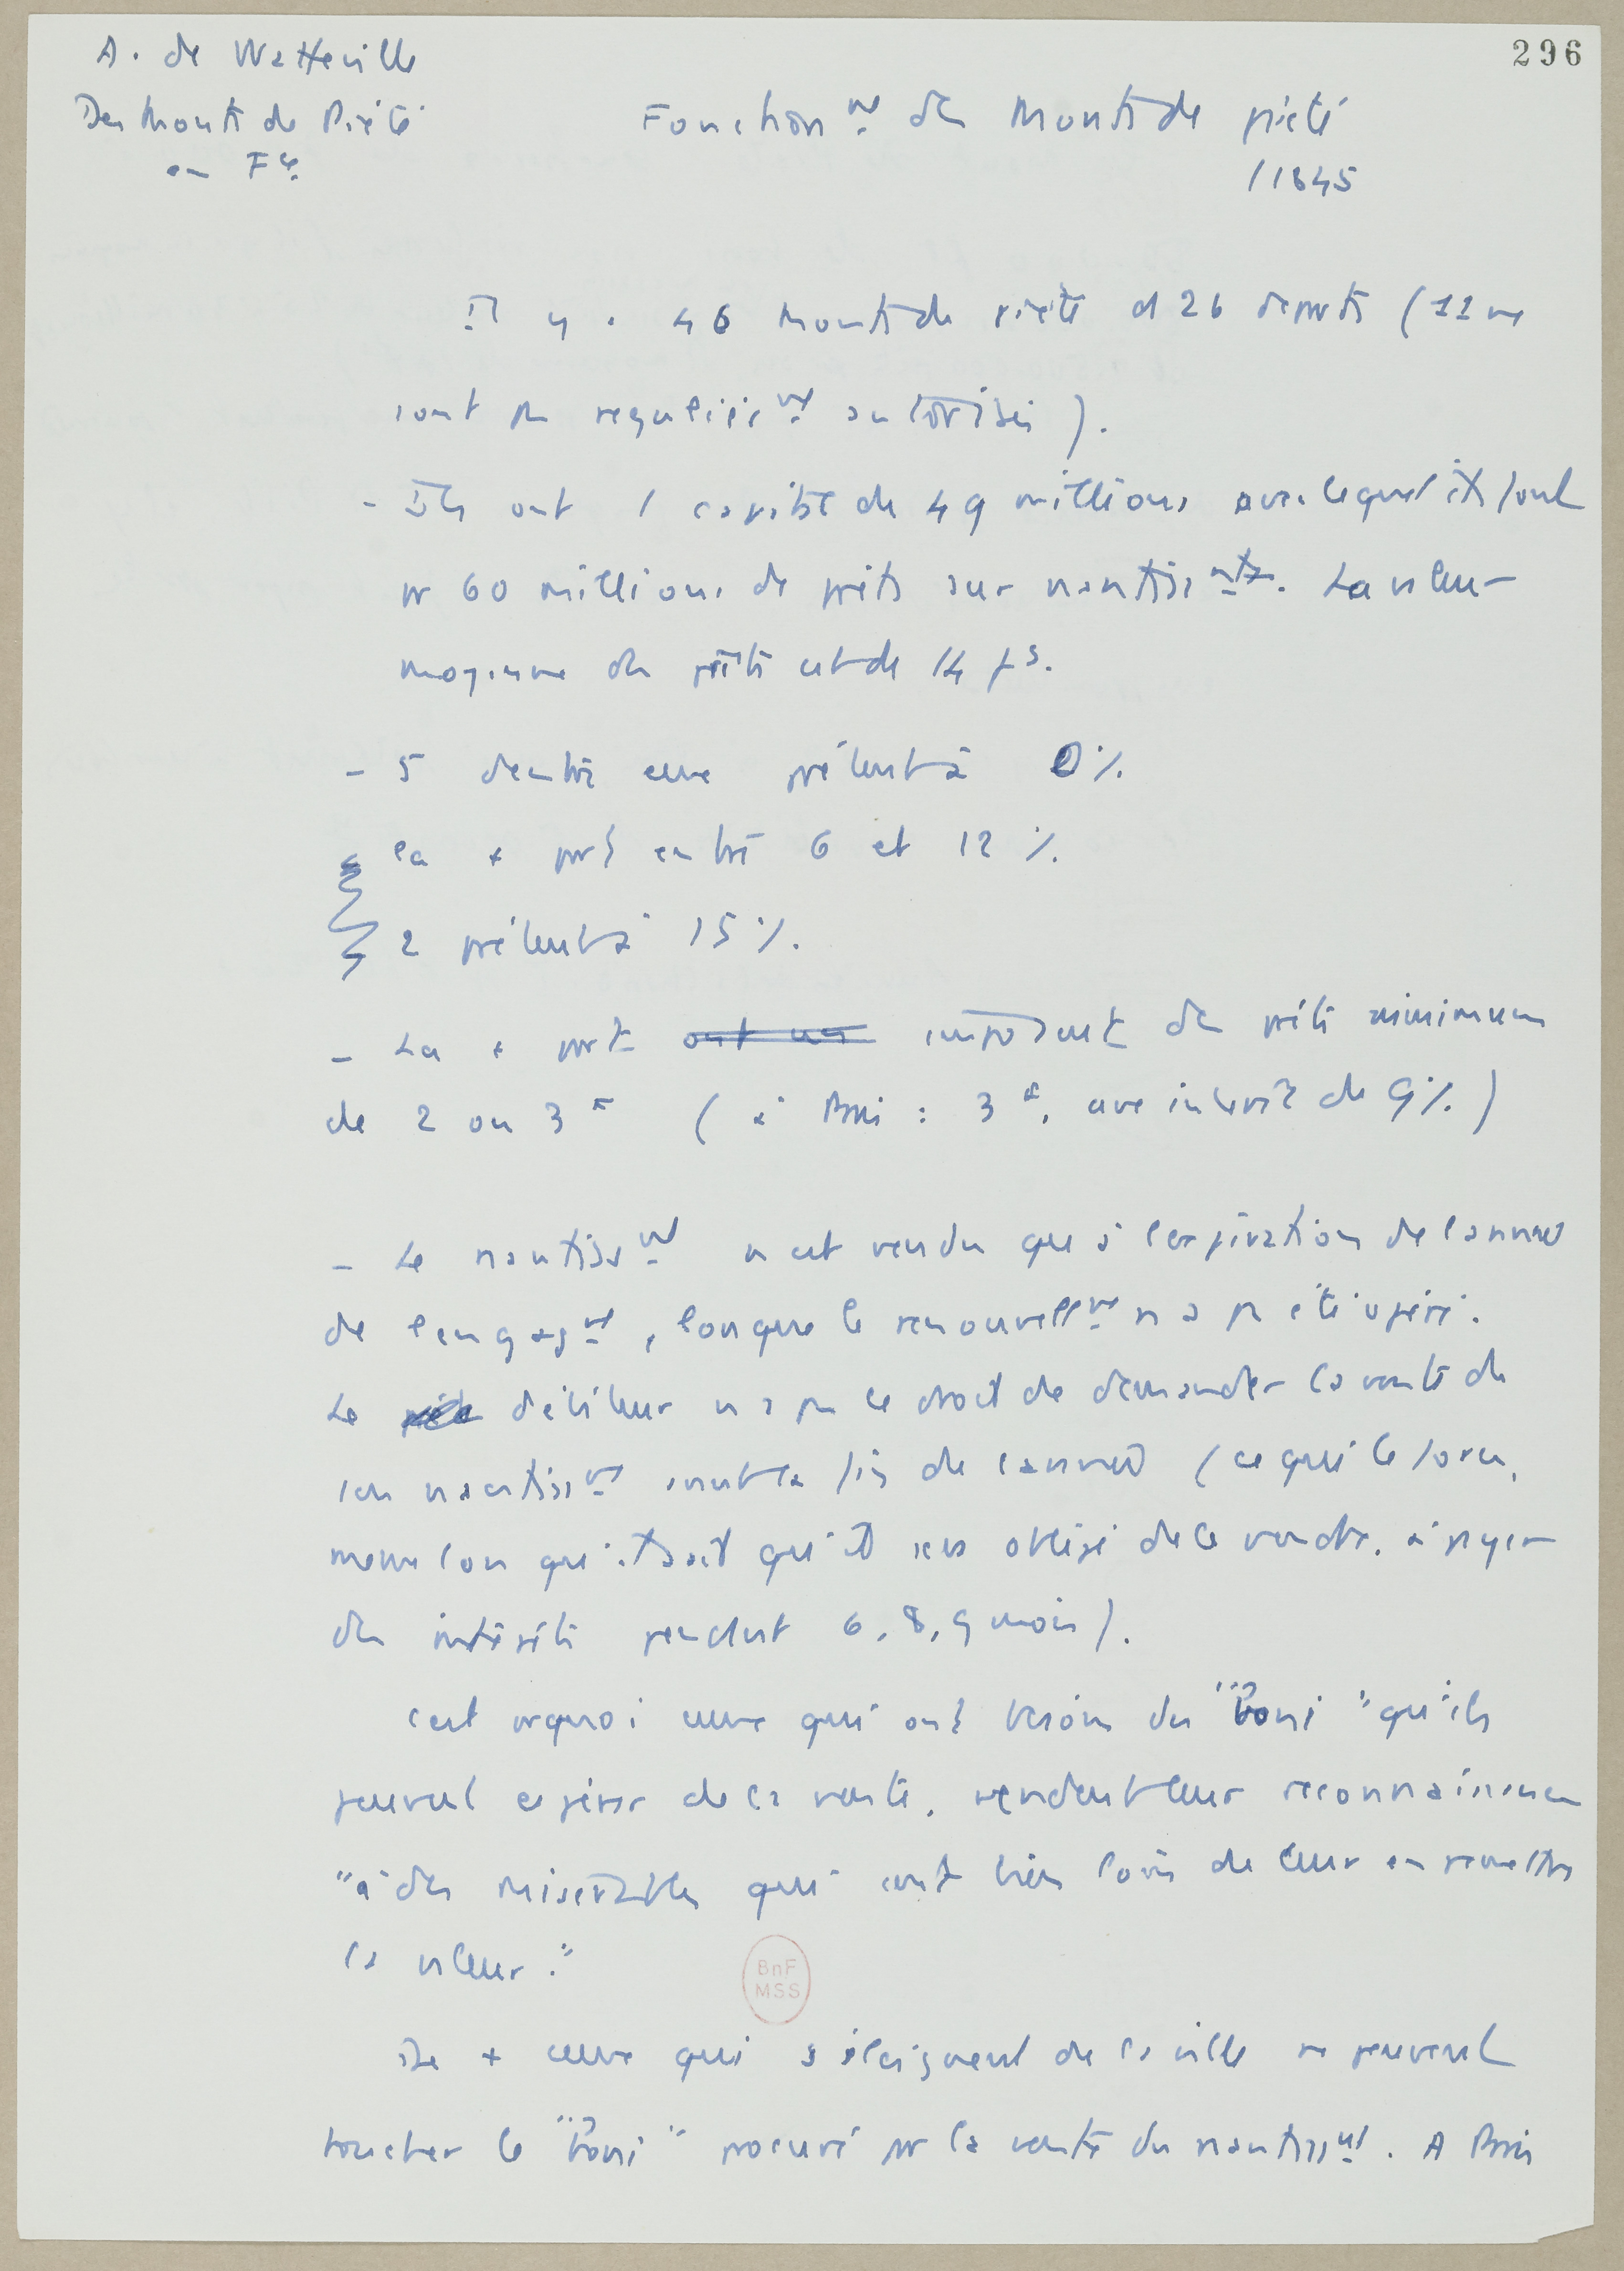 296
A. de Watteville
Des Monts de Piété
en Fce
Fonctionnt des Monts de piété
/1845
Il y a 46 Monts de piété ds 26 depmts (11 ne
sont pas regulièrmt autorisés).
- Ils ont 1 capital de 49 millions avec lequel ils font
pr 60 millions de prêts sur nantissmts. La valeur
moyenne des prêts est de 14 fs.
- 5 dentre eux prêtent à 0%
la + part entre 6 et 12 %
2 prêtent à 15%.
- La + part ont un imposent des prêts minimum
de 2 ou 3 F (à Paris : 3 F, avec intérêt de 9%)
- Le nantissmt n est vendu que à l'expiration de l année
de l engagmt, lorsque le renouvellmt n a pas été opéré.
Le débiteur n a pas le droit de demander la vente de
son nantissmt avant la fin de l année (ce qui le force,
meme lors qu'il sait qu'il sera obligé de le vendre, à payer
des intérêts pendant 6, 8, 9 mois).
C est prquoi ceux qui ont besoin du "boni" qu'ils
peuvent espérer de la vente, vendent leur reconnaissance
"à des misérables qui sont bien loin de leur en remettre
la valeur."
De + ceux qui s éloignent de la ville ne peuvent
toucher le "boni" procuré par la vente du nantissmt. A Paris
BnF
MSS